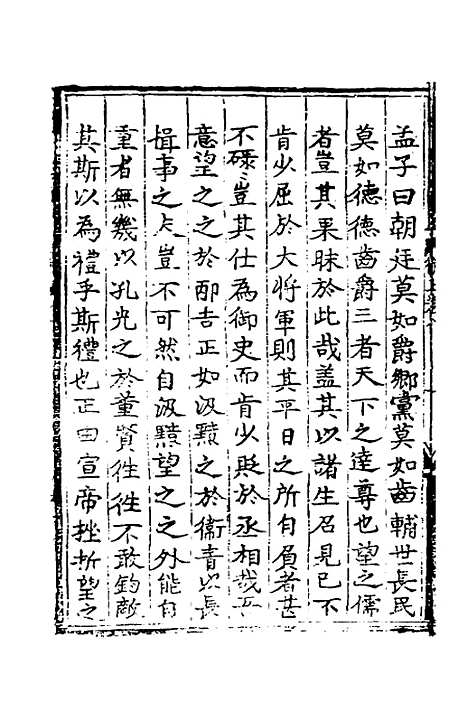 孟子曰朝廷莫如爵鄉黨莫如齒輔世長民
莫如德德齒爵三者天下之達尊也望之儒
者豈其果昧於此哉盖其以諸生召見已不
肯少屈於大將軍則其平日之所自負者甚
不碌〻豈其仕為御史而肯少貶於丞相哉
意望之之於邴吉正如汲黯之於衞青以長
揖事之夫豈不可然自汲黯望之之外能自
重者無幾以孔光之於董賢徃徃不敢鈞敵
其斯以為禮乎斯禮也正由宣帝挫折望之